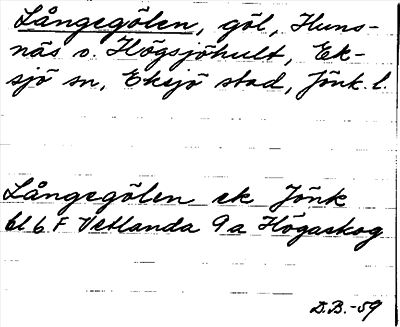 Långegölen, göl, Huns-
näs o. Högsjöhult, Ek-
sjö sn, Eksjö stad, Jönk. l.
Långegölen ek Jönk
bl 6 F Vetlanda 9a Högaskog
D.B.-59